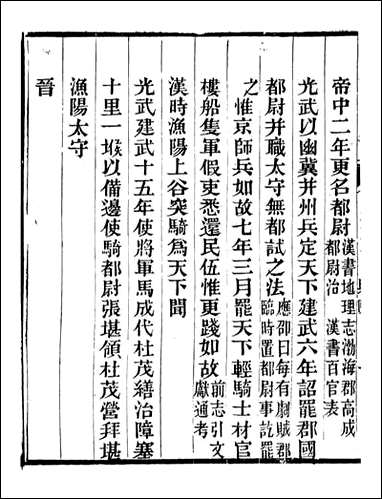 帝中二年更名都尉漢書地理志渤海郡高成
都尉治 漢書百官表
光武以幽冀并州兵定天下建武六年詔罷郡國
都尉并職太守無都試之法應邵曰每有劇賊郡
臨時置都尉事訖罷
之惟京師兵如故七年三月罷天下輕騎士材官
樓船隻軍假吏悉還民伍惟更踐如故前志引文
獻通考
漢時漁陽上谷突騎為天下聞
光武建武十五年使將軍馬成代杜茂繕治障塞
十里一堠以備邊使騎都尉張堪領杜茂營拜堪
漁陽太守
晉